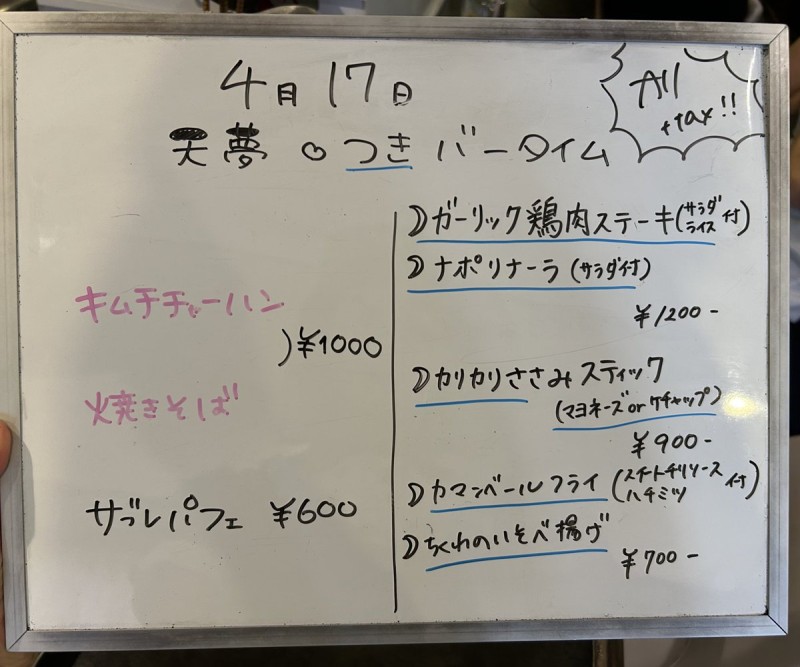 4月17日
天夢 ○ つき バータイム
All
+tax!!
キムチチャーハン
)¥1000
焼きそば
サブレパフェ ¥600
☽ ガーリック鶏肉ステーキ(サラダ ライス 付)
☽ ナポリナーラ (サラダ付)
¥1200-
☽ カリカリささみスティック
(マヨネーズorケチャップ)
¥900-
☽ カマンベールフライ (スイートチリソース ハチミツ 付)
☽ ちくわのいそべ揚げ
¥700-